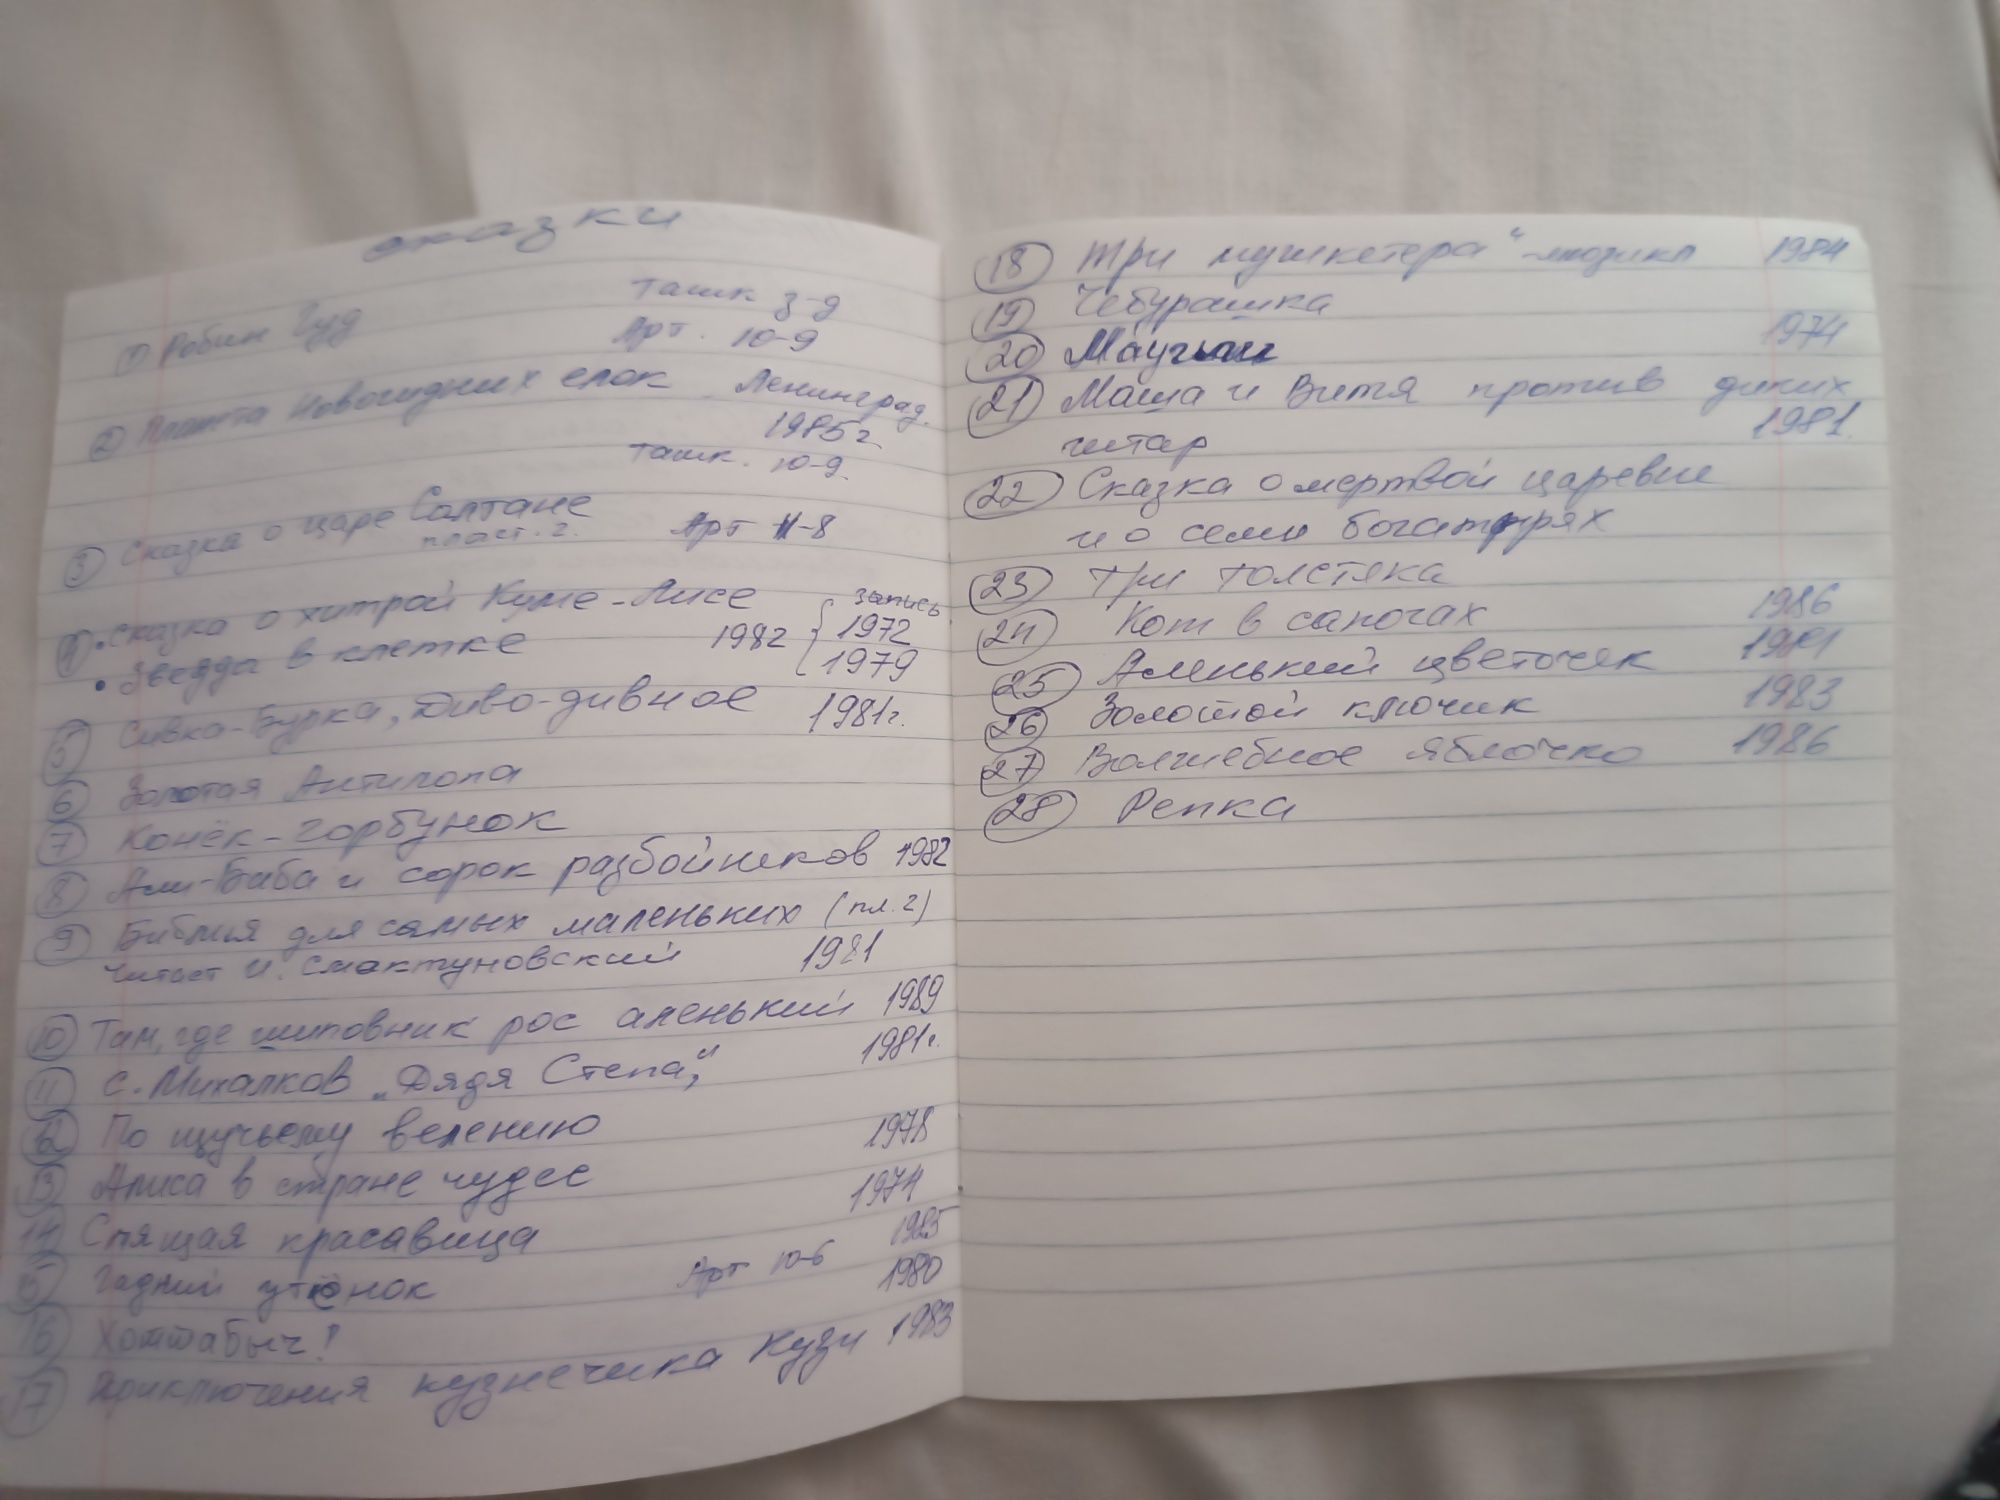 сказки
1) Робин Гуд Ташк 3-9
Арт. 10-9
2) Планета Новогодних елок Ленинград.
1985г.
Ташк. 10-9.
3) Сказка о царе Салтане
пласт. 2. Арт 11-8
4) • Сказка о хитрой Куме-Лисе { запись
• Звезда в клетке 1982 1972
1979
5) Сивка-Бурка, Диво-дивное 1981г.
6) Золотая Антилопа
7) Конёк-горбунок
8) Али-Баба и сорок разбойников 1982
9) Библия для самых маленьких (пл. 2)
читает И. Смоктуновский 1981
10) Там, где шиповник рос аленький 1989
11) С. Михалков „Дядя Степа" 1981г.
12) По щучьему велению
13) Алиса в стране чудес 1978
14) Спящая красавица 1974
15) Гадкий утёнок Арт 10-6 1985
16) Хоттабыч! 1980
17) Приключения кузнечика Кузи 1983
18) Три мушкетера" - мюзикл 1984
19) Чебурашка
20) Маугли 1974
21) Маша и Витя против диких
гитар 1981.
22) Сказка о мертвой царевне
и о семи богатырях
23) Три толстяка
24) Кот в сапогах 1986
25) Аленький цветочек
26) Золотой ключик 1983
27) Волшебное яблочко 1986
28) Репка